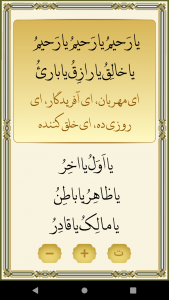 یا رَحیمُ یا رَحیمُ یا رَحیمُ
یا خالِقُ یا رازِقُ یا بارِئُ
ای مهربان، ای آفریدگار، ای
روزی‌ده، ای خلق کننده
یا اَوَّلُ یا اخِرُ
یا ظاهِرُ یا باطِنُ
یا مالِکُ یا قادِرُ
− + ت